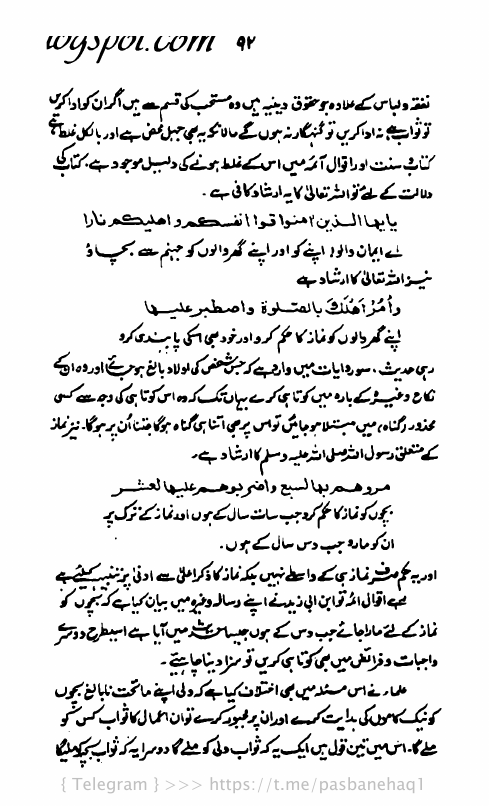 wgspot.com ۹۲
نفقہ ولباس کے علاوہ جو حقوق دینیہ ہیں وہ مستحب کی قسم سے ہیں اگر ان کو ادا کریں
تو ثواب ہے نہ ادا کریں تو گنہگار نہ ہوں گے حالانکہ یہ بھی جہل محض ہے اور بالکل غلط ہے
کتاب سنت اور اقوال آئمہ میں اس کے غلط ہونے کی دلیل موجود ہے۔ کتاب کی
دلالت کے لئے تو اللہ تعالیٰ کا یہ ارشاد کافی ہے۔
یایھا الذین امنوا قوا انفسکم و اھلیکم نارا
اے ایمان والو! اپنے کو اور اپنے گھر والوں کو جہنم سے بچاؤ
نیز اللہ تعالیٰ کا ارشاد ہے
وَأمُرْ اَهْلَكَ بالصَّلوة واصطبر علیها
اپنے گھر والوں کو نماز کا حکم کرو اور خود بھی اسکی پابندی کرو
رہی حدیث، سو روایات میں وارد ہے کہ جس شخص کی اولاد بالغ ہو جائے اور وہ ان کے
نکاح وغیرہ کے بارہ میں کوتاہی کرے یہاں تک کہ وہ اس کوتاہی کی وجہ سے کسی
محذور (گناہ) میں مبتلا ہو جائیں تو اس پر بھی اتنا ہی گناہ ہوگا جتنا اُن پر ہوگا۔ نیز نماز
کے متعلق رسول اللہ صلی اللہ علیہ وسلم کا ارشاد ہے۔
مروھم بھا لسبع واضربوھم علیھا لعشر
بچوں کو نماز کا حکم کرو جب سات سال کے ہوں اور نماز کے ترک پر
ان کو مارو جب دس سال کے ہوں۔
اور یہ حکم صرف نماز ہی کے واسطے نہیں بلکہ نماز کا ذکر اعلیٰ سے ادنیٰ پر تنبیہ کیلئے ہے
رہے اقوال ائمہ تو ابن ابی زید نے اپنے رسالہ وغیرہ میں بیان کیا ہے کہ بچوں کو
نماز کے لئے مارا جائے جب دس کے ہوں جیسا حدیث میں آیا ہے اسیطرح دوسرے
واجبات و فرائض میں بھی کوتاہی کریں تو سزا دینا چاہیئے۔
علماء نے اس مسئلہ میں بھی اختلاف کیا ہے کہ ولی اپنے ماتحت نابالغ بچوں
کو نیک کاموں کی ہدایت کرے اور ان پر مجبور کرے تو ان اعمال کا ثواب کس کو
ملے گا۔ اس میں تین قول ہیں ایک یہ کہ ثواب ولی کو ملے گا دوسرا یہ کہ ثواب بچہ کو ملیگا
{ Telegram } >>> https://t.me/pasbanehaq1